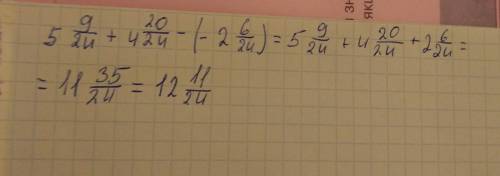 зн
яки
5 9/24 + 4 20/24 - (- 2 6/24) = 5 9/24 + 4 20/24 + 2 6/24 =
= 11 35/24 = 12 11/24